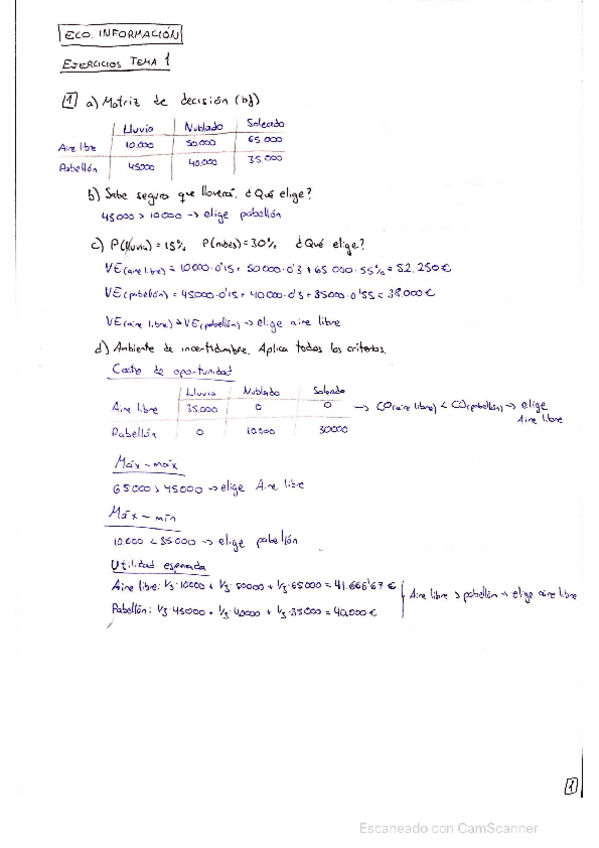 ECO. INFORMACIÓN
EJERCICIOS TEMA 1
1 a) Matriz de decisión (bf)
Lluvia Nublado Soleado
Aire libre 10.000 50.000 65.000
Pabellón 45000 40.000 35.000
b) Sabe seguro que lloverá. ¿Qué elige?
45000 > 10000 → elige pabellón
c) P(lluvia) = 15% P(nubes) = 30% ¿Qué elige?
VE(aire libre) = 10000·0'15 + 50000·0'3 + 65000·55% = 52.250€
VE(pabellón) = 45000·0'15 + 40000·0'3 + 35000·0'55 = 38.000€
VE(aire libre) > VE(pabellón) → elige aire libre
d) Ambiente de incertidumbre. Aplica todos los criterios.
Coste de oportunidad
Lluvia Nublado Soleado
Aire libre 35.000 0 0 → CO(aire libre) < CO(pabellón) → elige Aire libre
Pabellón 0 10.000 30000
Máx-máx
65000 > 45000 → elige Aire libre
Máx-mín
10.000 < 35000 → elige pabellón
Utilidad esperada
Aire libre: 1/3·10000 + 1/3·50000 + 1/3·65000 = 41.666'67€
Pabellón: 1/3·45000 + 1/3·40000 + 1/3·35000 = 40.000€
Aire libre > pabellón → elige aire libre
1
Escaneado con CamScanner